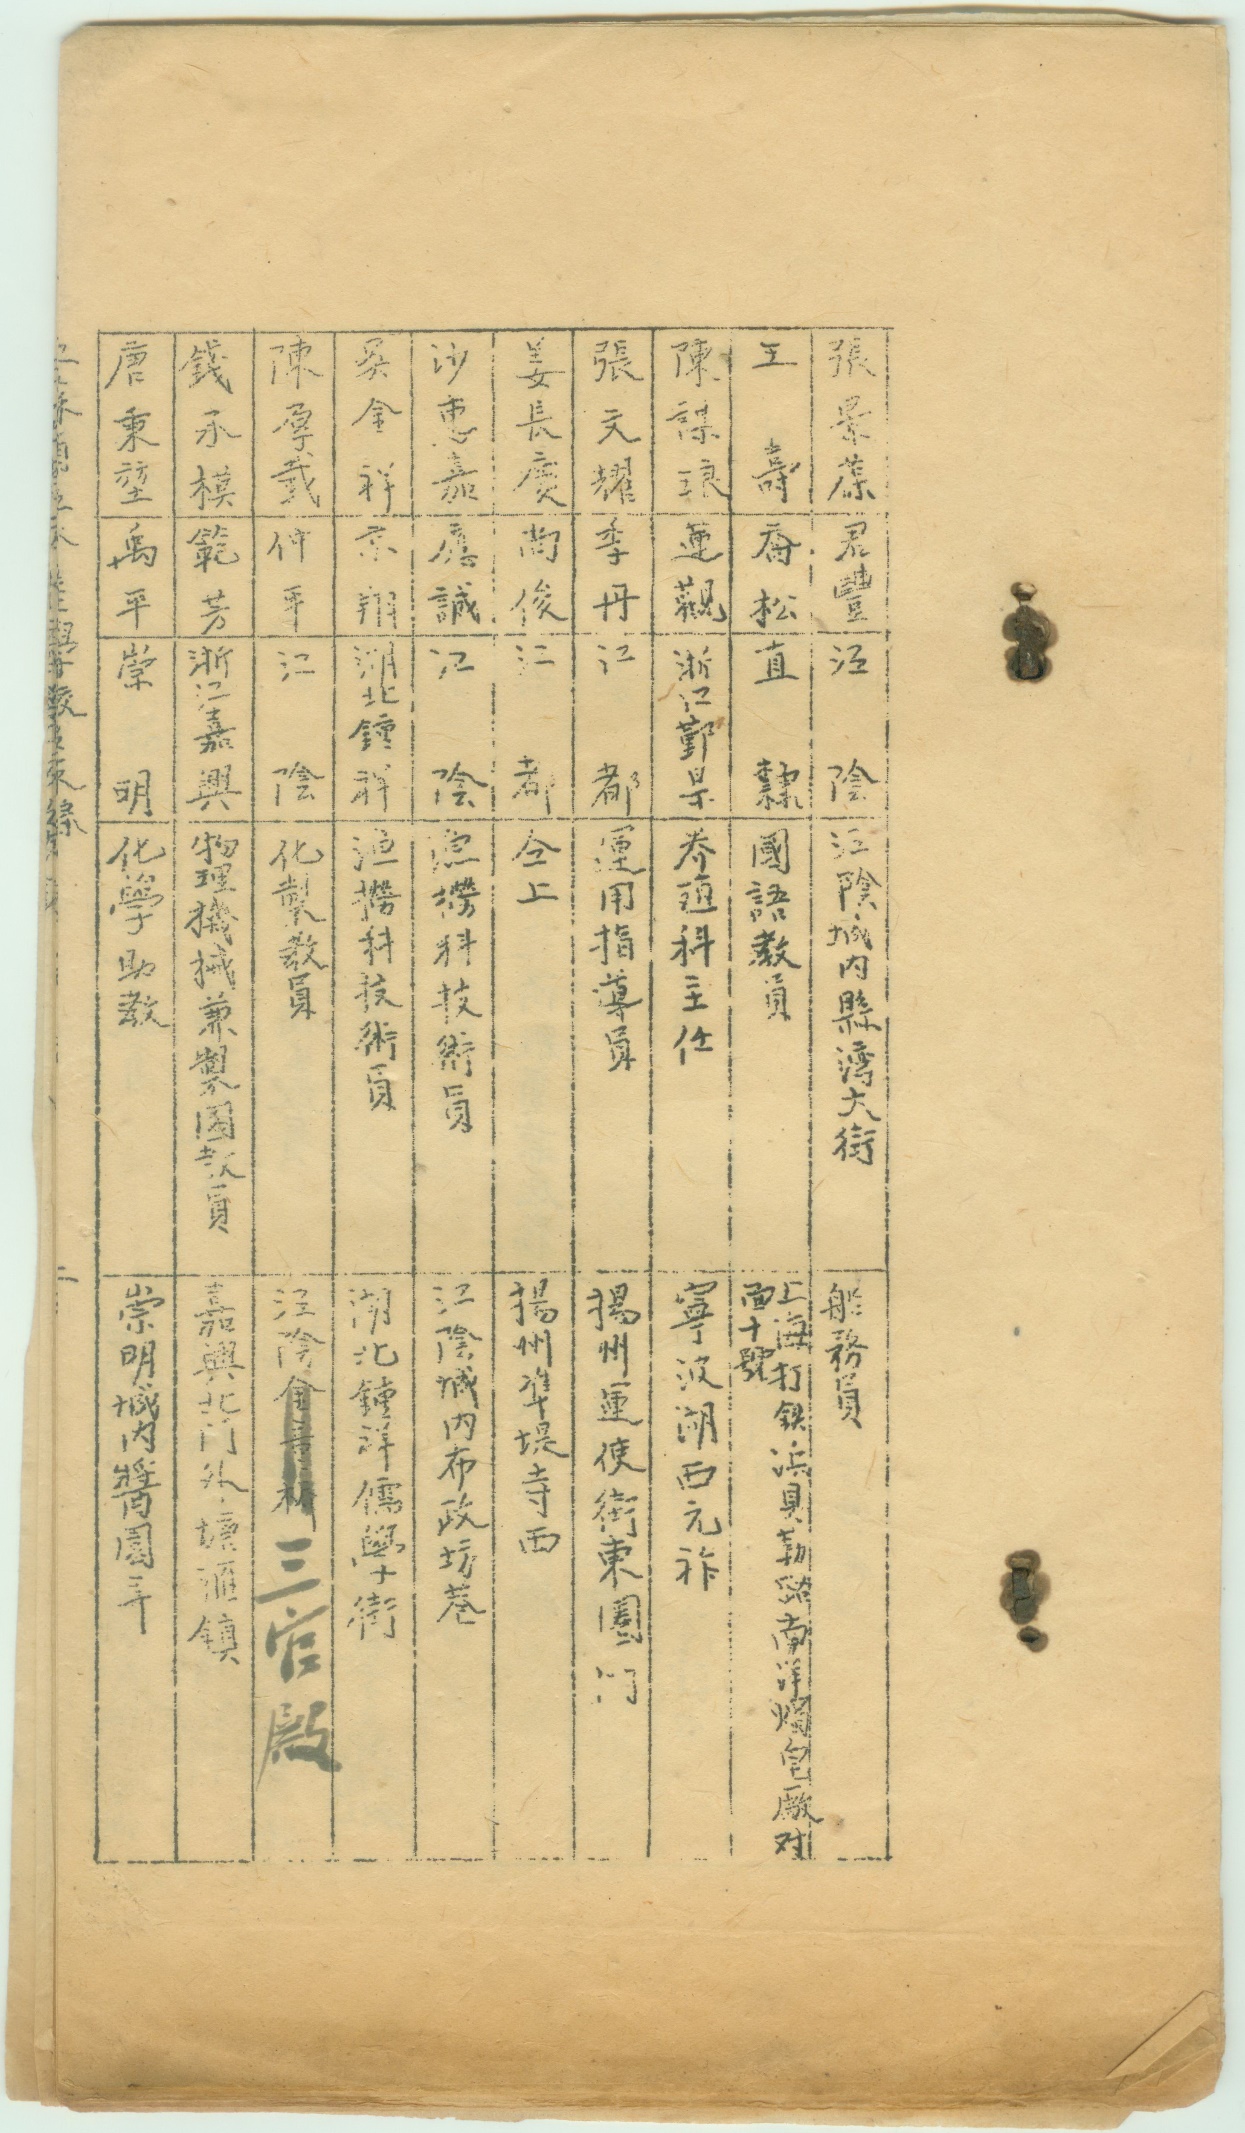 張景葆 君豐 江陰 江陰城內縣灣大街 船務員
王壽 喬松 直隸 國語教員 上海打鉄浜貝勒路南洋燭皂廠对面十號
陳謀琅 運觀 浙江鄞县 养殖科主任 寧波湖西元祚
張文耀 季丹 江都 運用指導員 揚州運使街東圈门
姜長庚 尚俊 江都 仝上 揚州準堤寺西
沙惠嘉 應誠 江陰 漁撈科技術員 江陰城内布政坊巷
吴金祥 京翔 湖北鍾祥 漁撈科技術員 湖北鍾祥儒學街
陳孕哉 仲平 江陰 化製教員 江陰 三官殿
錢承模 範芳 浙江嘉興 物理機械兼製图教員 嘉興北门外塘滙鎮
唐秉 禹平 崇明 化學助教 崇明城内醬園弄
二